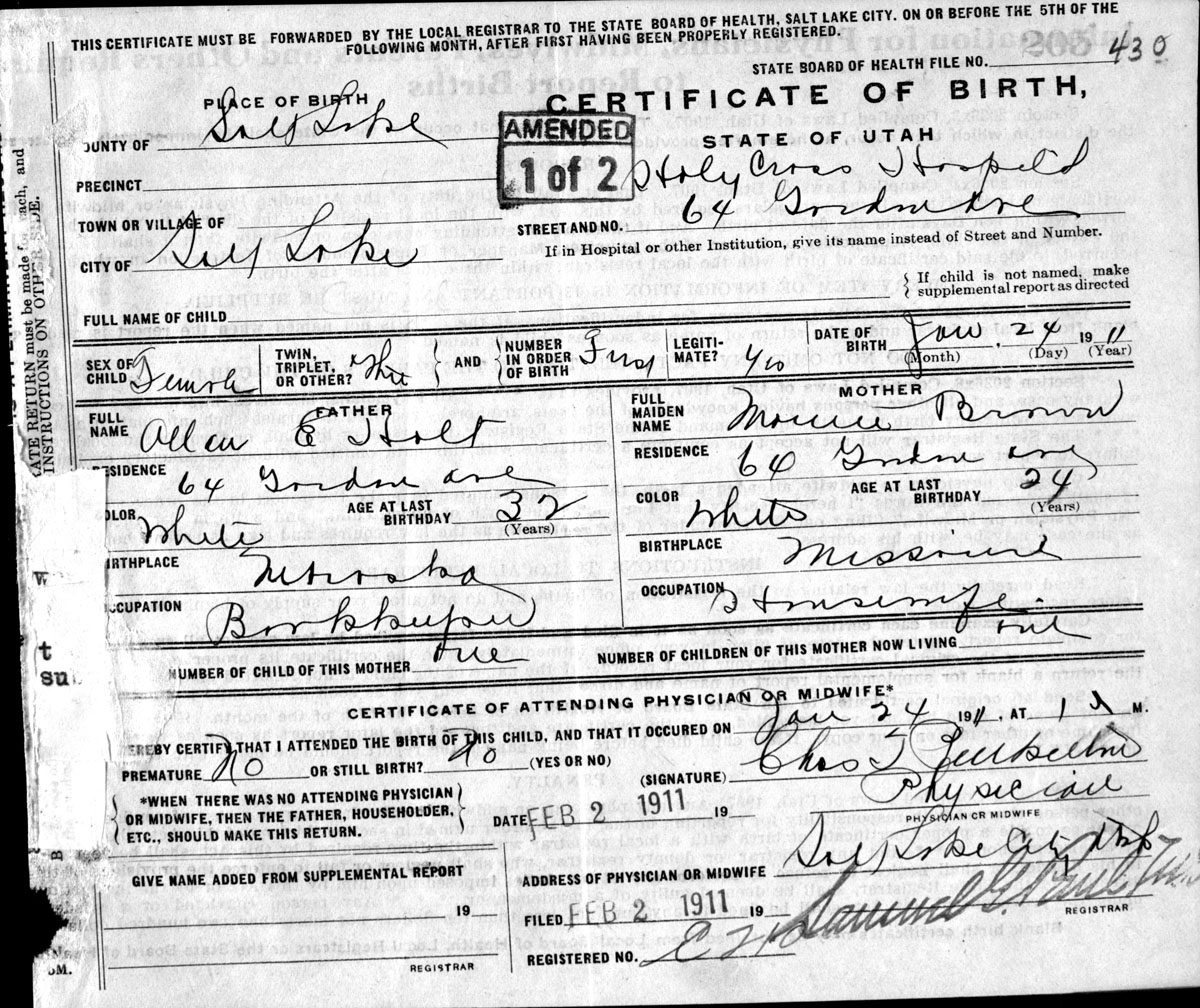 THIS CERTIFICATE MUST BE FORWARDED BY THE LOCAL REGISTRAR TO THE STATE BOARD OF HEALTH, SALT LAKE CITY. ON OR BEFORE THE 5TH OF THE
FOLLOWING MONTH, AFTER FIRST HAVING BEEN PROPERLY REGISTERED.
STATE BOARD OF HEALTH FILE NO. 430
PLACE OF BIRTH
CERTIFICATE OF BIRTH,
STATE OF UTAH
AMENDED
1 of 2
OUNTY OF Salt Lake
PRECINCT
Holy Cross Hospital
TOWN OR VILLAGE OF
STREET AND NO. 64 Gordon Ave
CITY OF Salt Lake
If in Hospital or other Institution, give its name instead of Street and Number.
FULL NAME OF CHILD
{ If child is not named, make
supplemental report as directed
SEX OF CHILD Female
TWIN, TRIPLET, OR OTHER?
} AND {
NUMBER IN ORDER OF BIRTH First
LEGITI- MATE? Yes
DATE OF BIRTH Jan. 24 1911
(Month) (Day) (Year)
FATHER
FULL NAME Allen E Holt
RESIDENCE 64 Gordon ave
OLOR White
AGE AT LAST BIRTHDAY 32
(Years)
IRTHPLACE Nebraska
CCUPATION Bookkeeper
MOTHER
FULL MAIDEN NAME Brown
RESIDENCE 64 Gordon ave
COLOR White
AGE AT LAST BIRTHDAY 24
(Years)
BIRTHPLACE Missouri
OCCUPATION Housewife
NUMBER OF CHILD OF THIS MOTHER
NUMBER OF CHILDREN OF THIS MOTHER NOW LIVING
CERTIFICATE OF ATTENDING PHYSICIAN OR MIDWIFE*
HEREBY CERTIFY THAT I ATTENDED THE BIRTH OF THIS CHILD, AND THAT IT OCCURED ON Jan 24 1911, AT 1 M.
PREMATURE No OR STILL BIRTH? No (YES OR NO)
(SIGNATURE) Chas
{ *WHEN THERE WAS NO ATTENDING PHYSICIAN
OR MIDWIFE, THEN THE FATHER, HOUSEHOLDER,
ETC., SHOULD MAKE THIS RETURN. }
DATE FEB 2 1911 19
Physician
PHYSICIAN OR MIDWIFE
GIVE NAME ADDED FROM SUPPLEMENTAL REPORT
ADDRESS OF PHYSICIAN OR MIDWIFE Salt Lake City
19
FILED FEB 2 1911 19
Samuel G.
REGISTRAR
REGISTERED NO.
REGISTRAR
ATE RETURN must be made for each, and
INSTRUCTIONS ON OTHER SIDE.